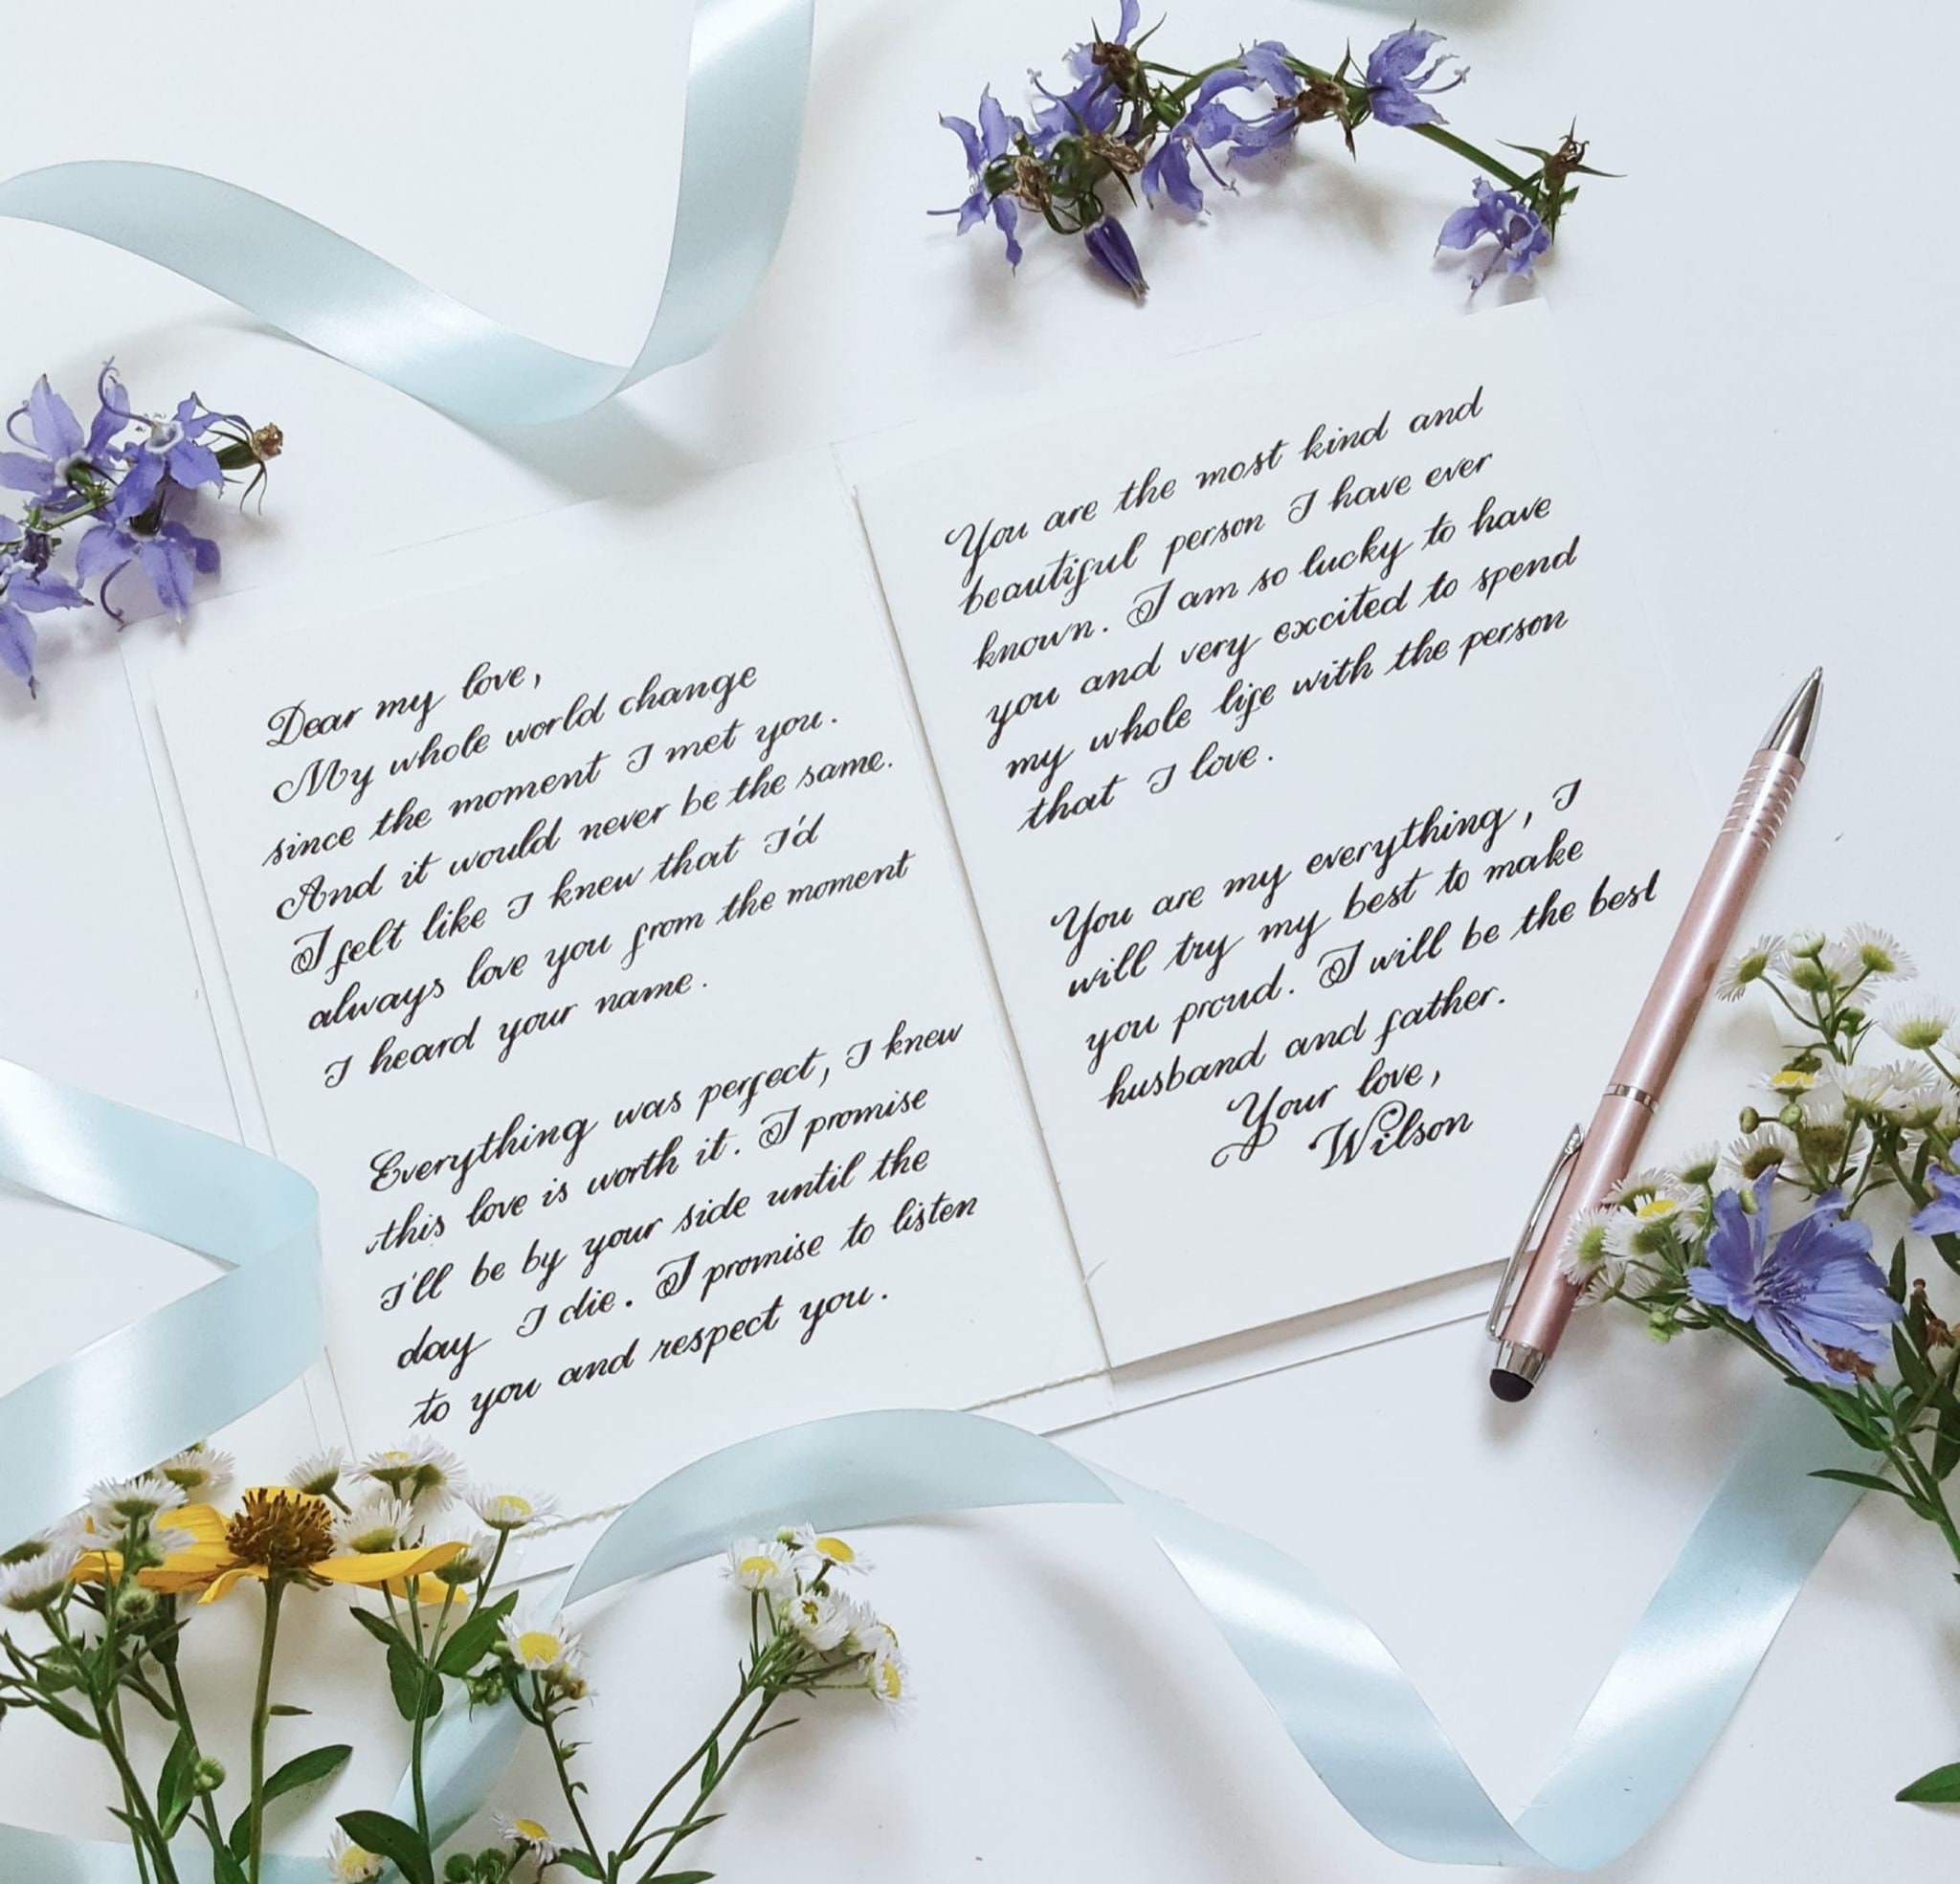 Dear my love,
My whole world change
since the moment I met you.
And it would never be the same.
I felt like I knew that I'd
always love you from the moment
I heard your name.
Everything was perfect, I knew
this love is worth it. I promise
I'll be by your side until the
day I die. I promise to listen
to you and respect you.
You are the most kind and
beautiful person I have ever
known. I am so lucky to have
you and very excited to spend
my whole life with the person
that I love.
You are my everything, I
will try my best to make
you proud. I will be the best
husband and father.
Your love,
Wilson